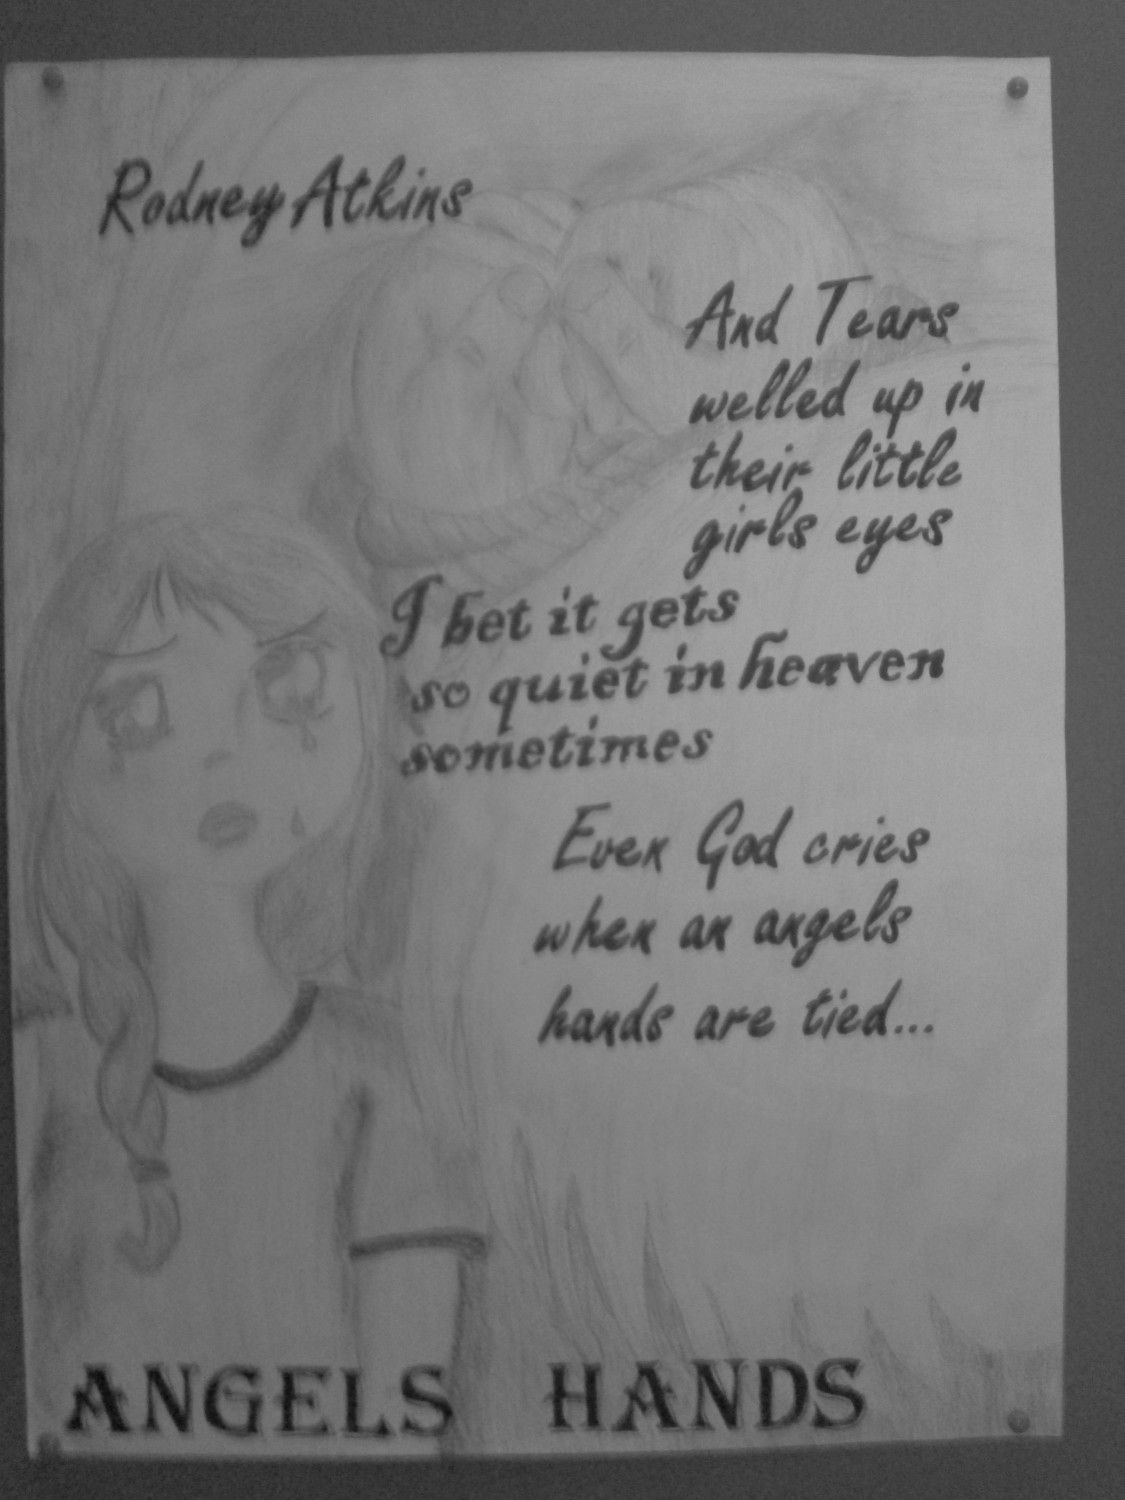 Rodney Atkins
And Tears
welled up in
their little
girls eyes
I bet it gets
so quiet in heaven
sometimes
Even God cries
when an angels
hands are tied...
ANGELS HANDS